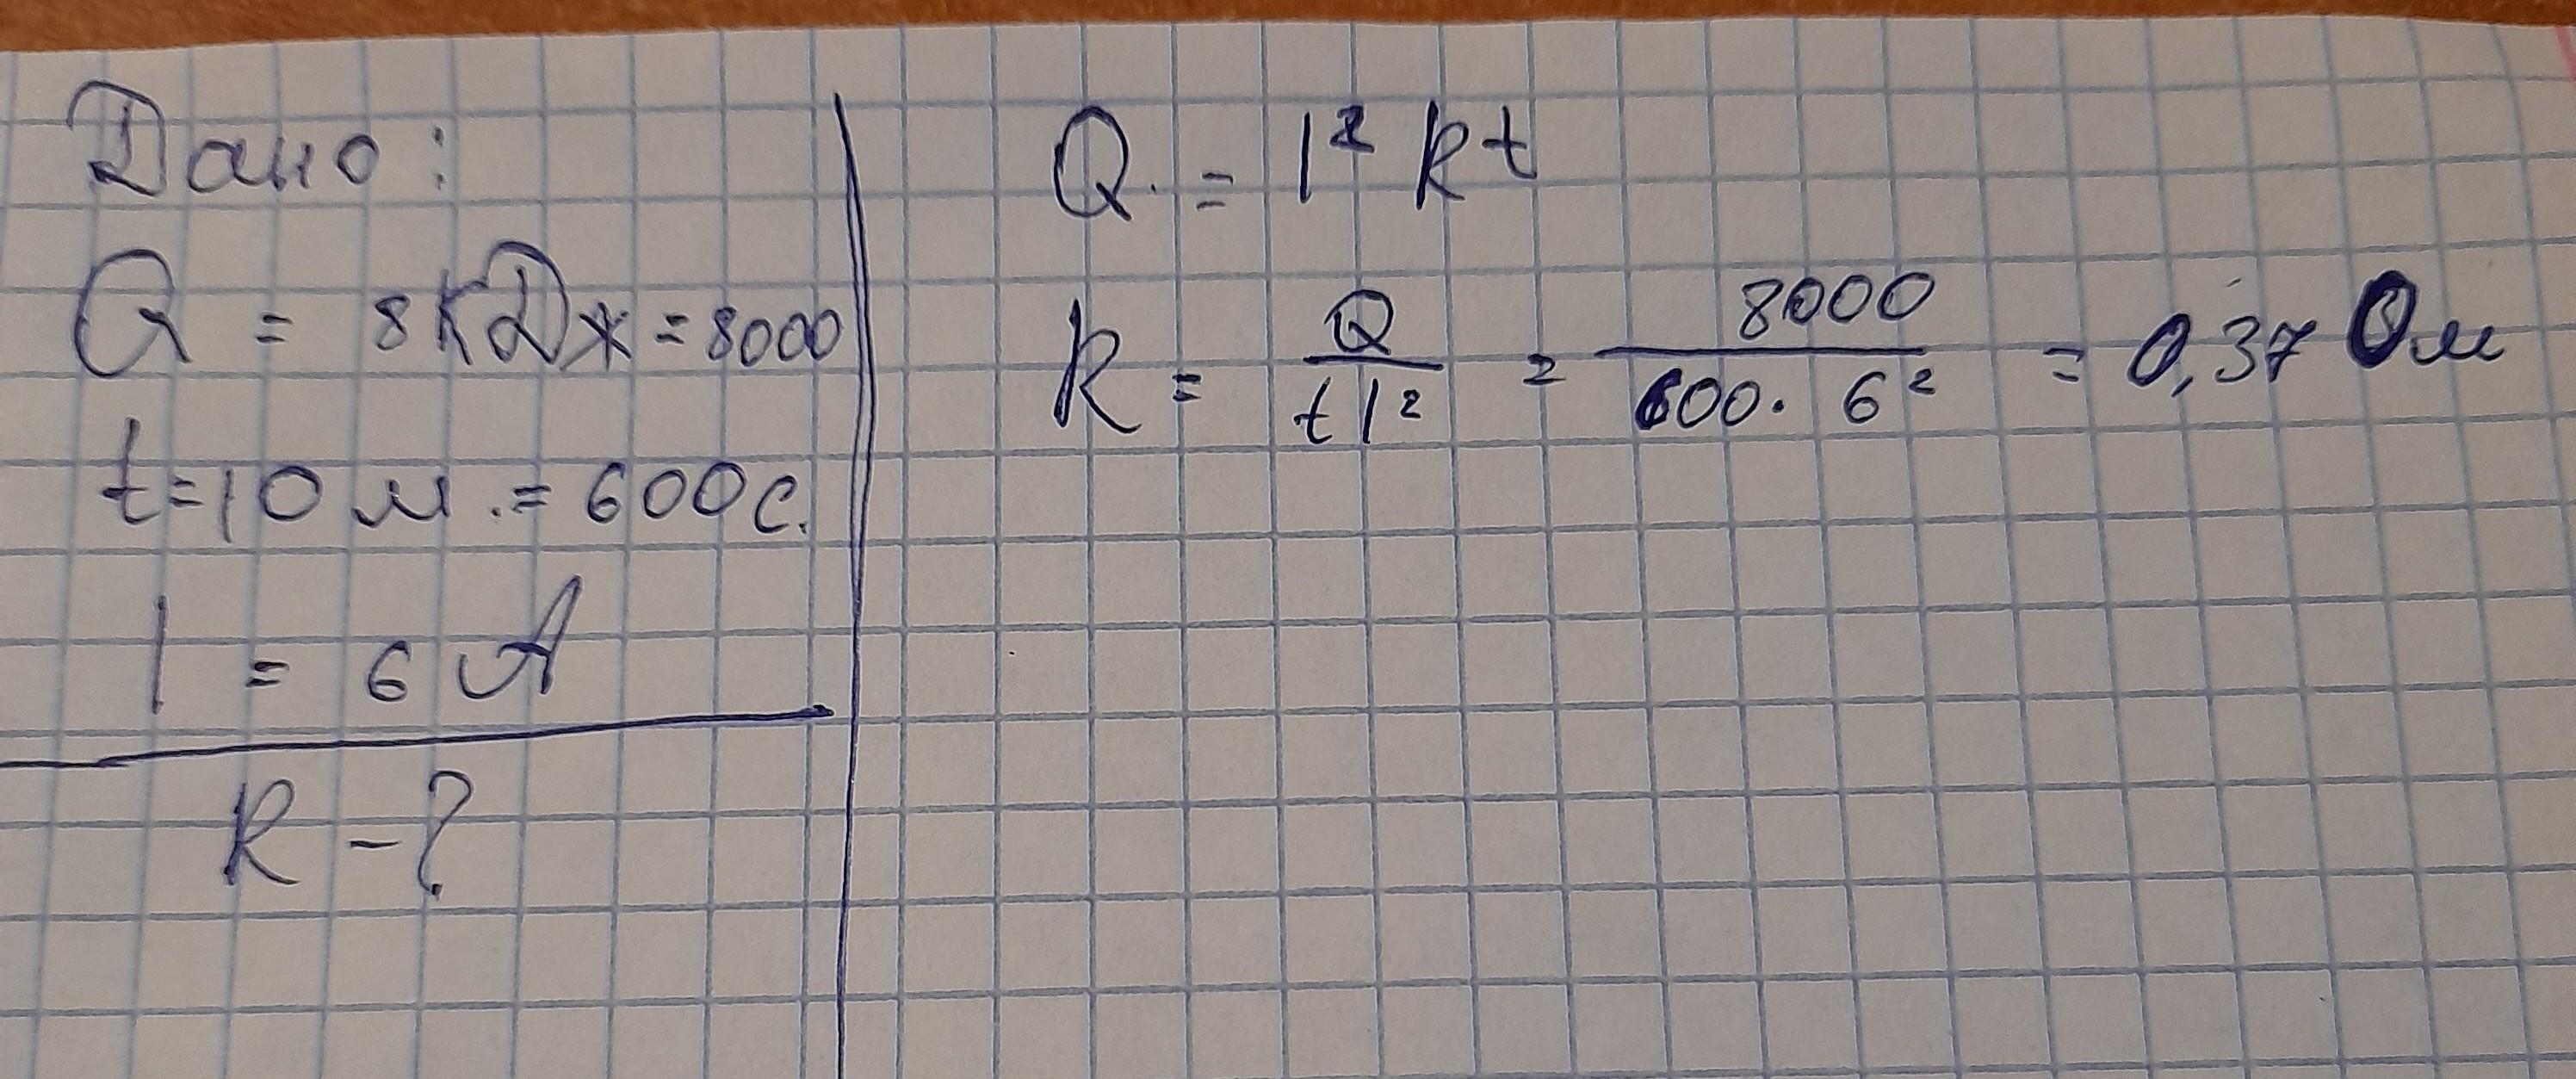 Дано:
Q = 8 КДж = 8000
t = 10 м. = 600 с.
I = 6 А
R - ?
Q = I² R t
R = Q / t I² = 8000 / 600 · 6² = 0,37 Ом